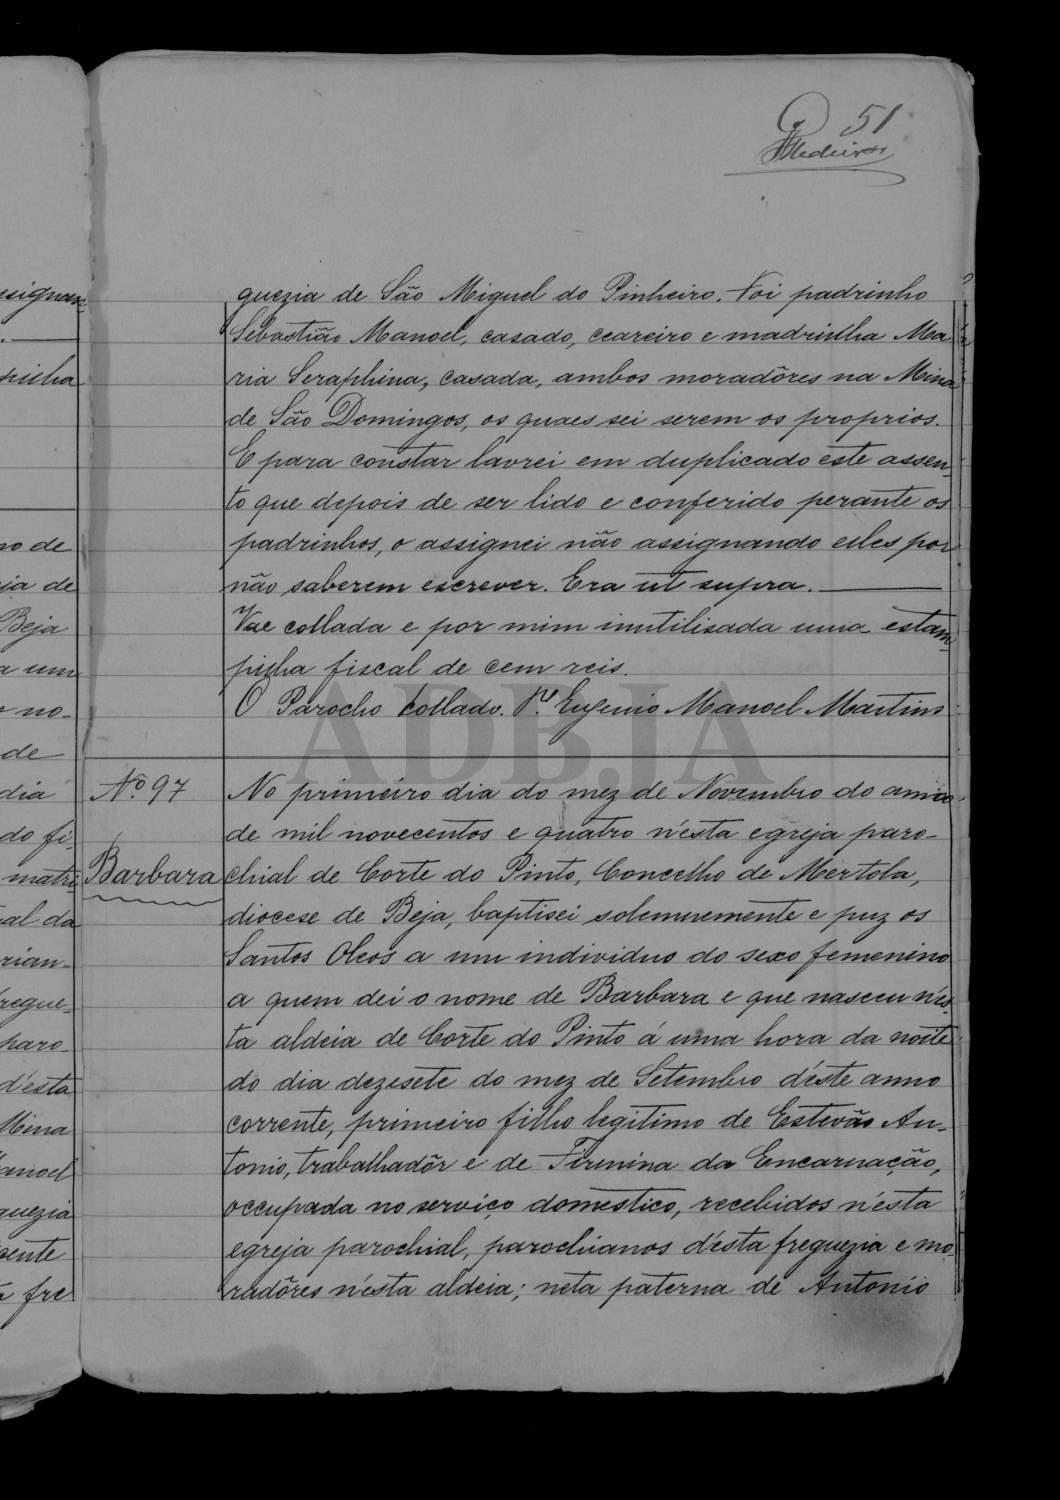 51
Medeiros
guezia de São Miguel do Pinheiro. Foi padrinho
Sebastião Manoel, casado, ceareiro e madrinha Ma-
ria Seraphina, casada, ambos moradôres na Mina
de São Domingos, os quaes sei serem os proprios.
E para constar lavrei em duplicado este assen-
to que depois de ser lido e conferido perante os
padrinhos, o assignei não assignando elles por
não saberem escrever. Era ut supra.
Vae collada e por mim inutilisada uma estam-
pilha fiscal de cem reis.
O Parocho Collado. Pe. Eugenio Manoel Martins
ADBJA
Nº 97
Barbara
No primeiro dia do mez de Novembro do anno
de mil novecentos e quatro n'esta egreja paro-
chial de Corte do Pinto, Concelho de Mertola,
diocese de Beja, baptisei solemnemente e puz os
Santos Oleos a um individuo do sexo femenino
a quem dei o nome de Barbara e que nasceu n'es-
ta aldeia de Corte do Pinto á uma hora da noite
do dia dezesete do mez de Setembro d'éste anno
corrente, primeiro filho legitimo de Estevão An-
tonio, trabalhadôr e de Firmina da Encarnação,
occupada no serviço domestico, recebidos n'esta
egreja parochial, parochianos d'ésta freguezia e mo-
radôres n'ésta aldeia; neta paterna de Antonio
ssignan
pilha
no de
ia de
Beja
a um
no-
de
dia
do fi
matri
al da
rian-
regue-
paro-
d'ésta
Mina
anoel
guezia
oente
fre